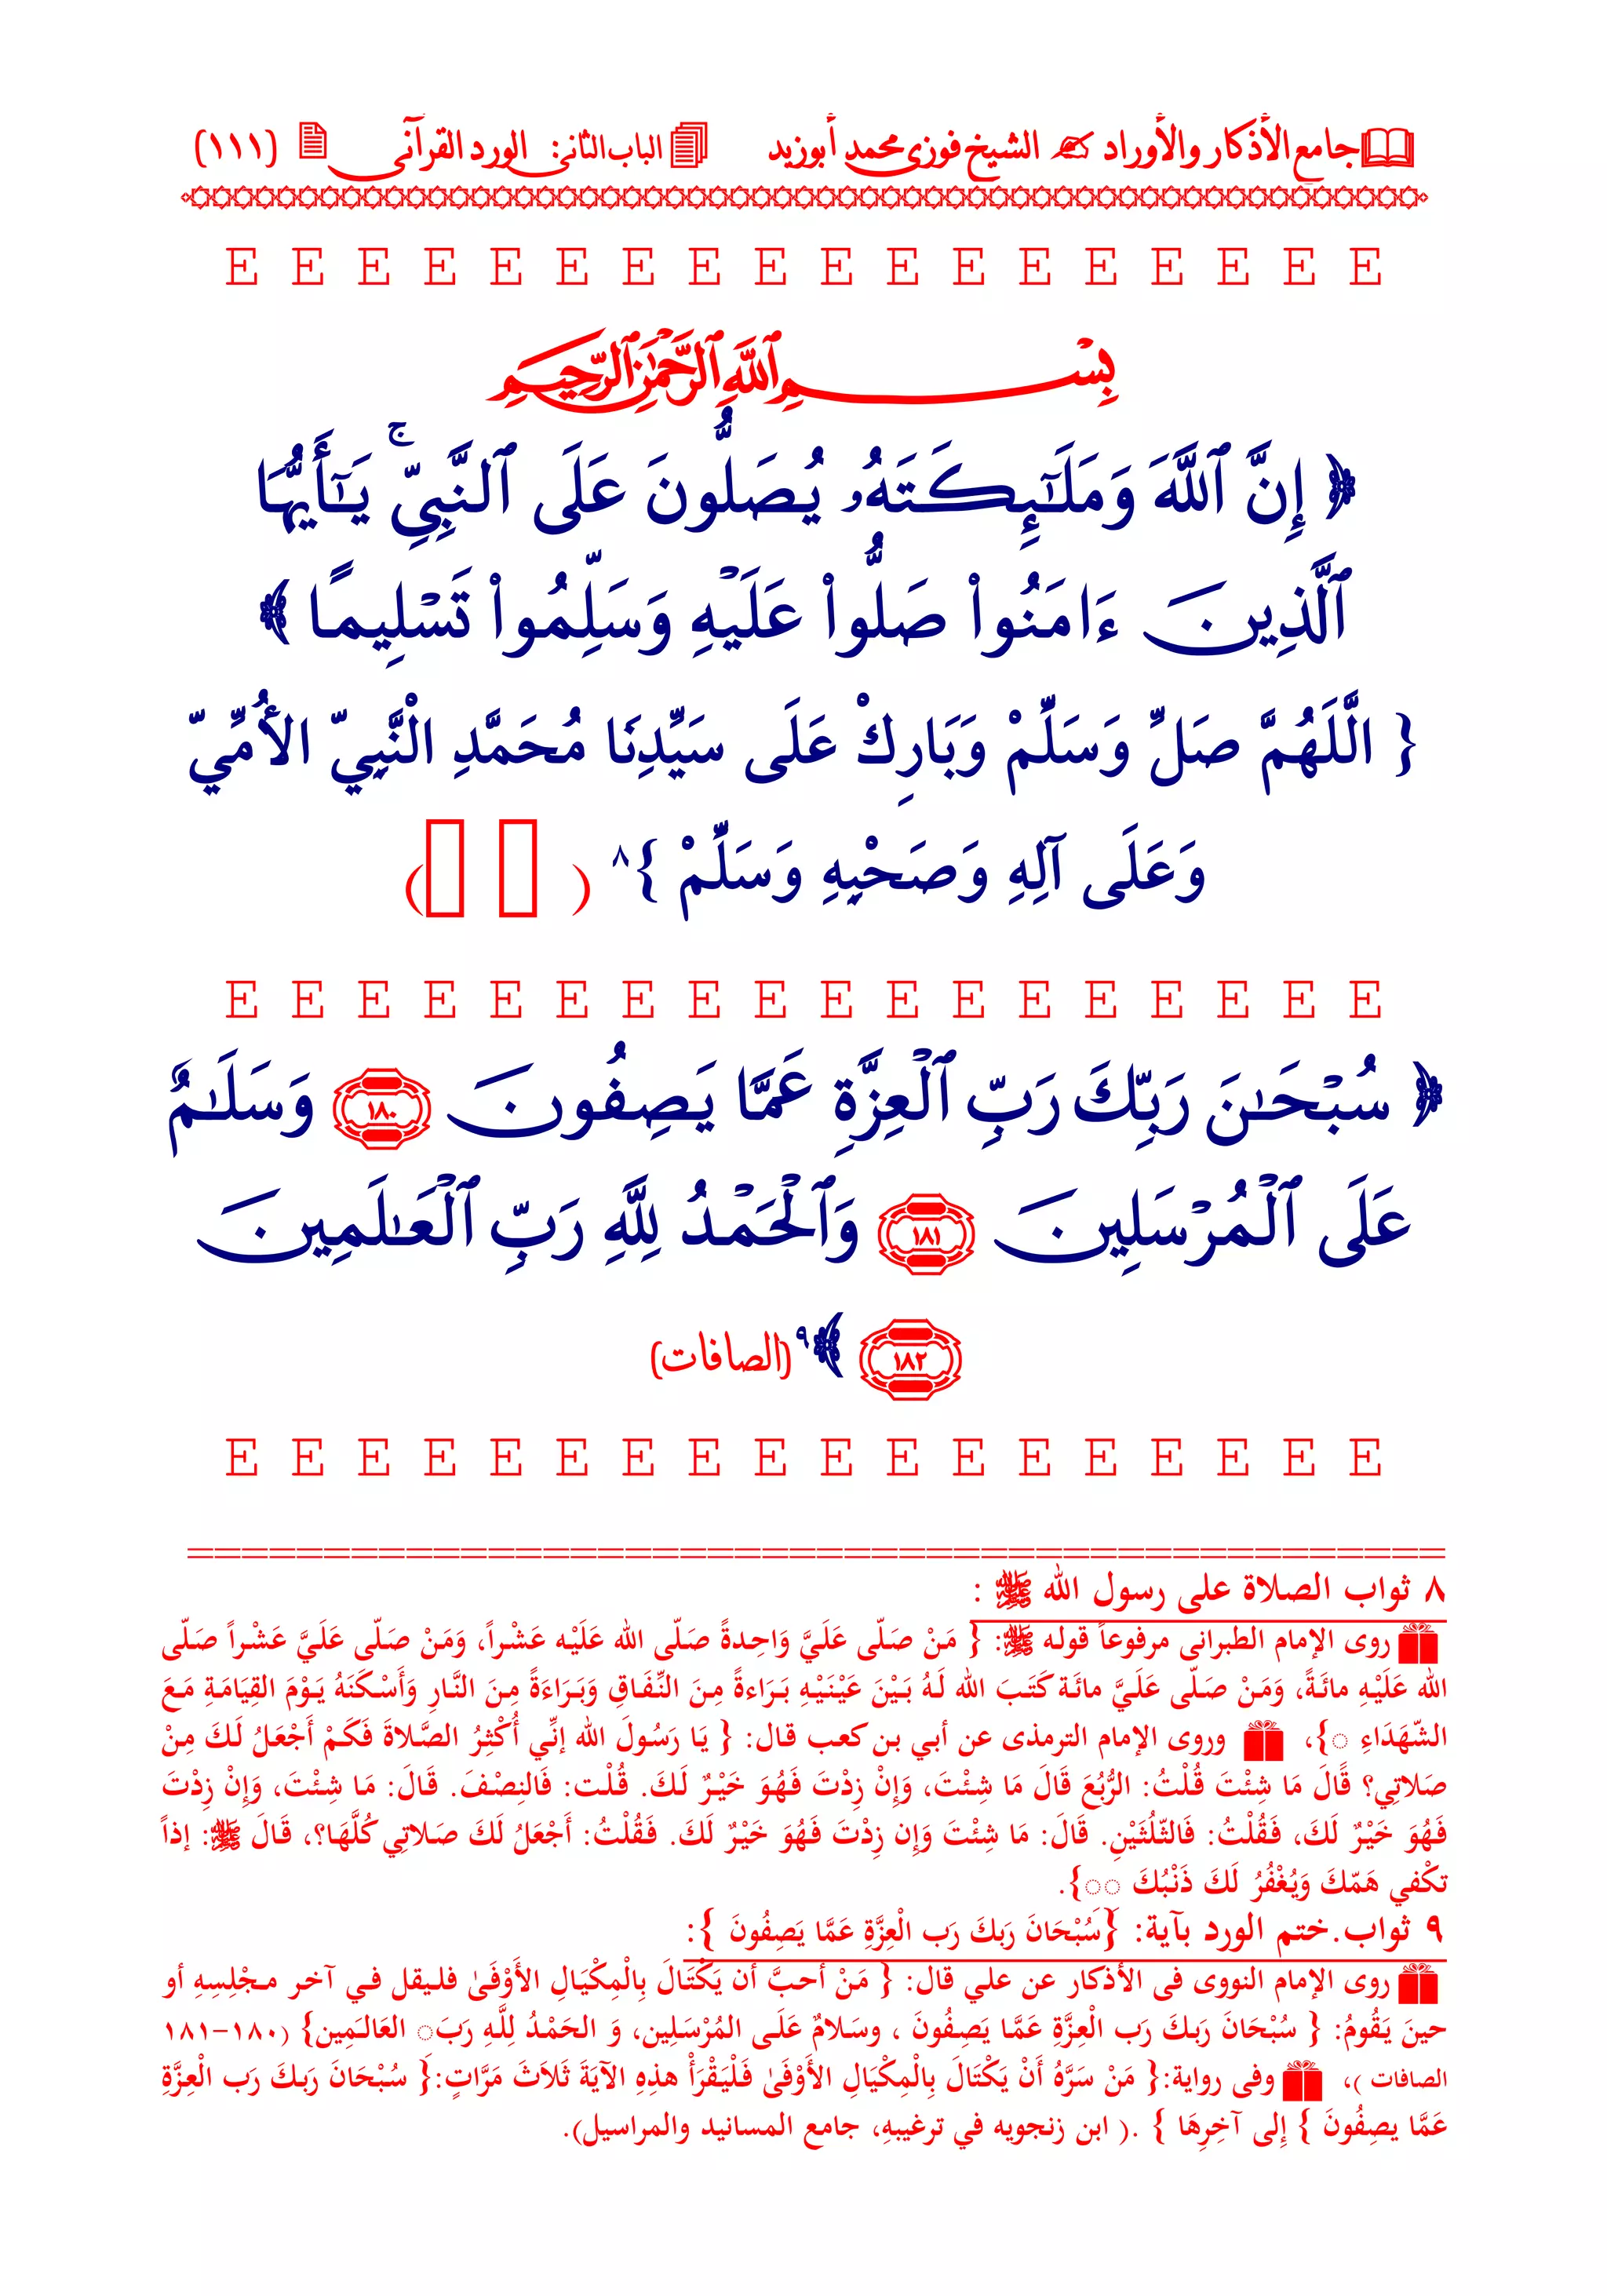 جامع الأذكار والأوراد الشيخ فوزى محمد أبوزيد الباب الثانى: الورد القرآنى (١١١)
E E E E E E E E E E E E E E E E E E
بِسْمِ ٱللَّهِ ٱلرَّحْمَٰنِ ٱلرَّحِيمِ
﴿ إِنَّ ٱللَّهَ وَمَلَـٰٓئِكَتَهُۥ يُصَلُّونَ عَلَى ٱلنَّبِىِّ ۚ يَـٰٓأَيُّهَا
ٱلَّذِينَ ءَامَنُوا۟ صَلُّوا۟ عَلَيْهِ وَسَلِّمُوا۟ تَسْلِيمًا ﴾
{ اللَّهُمَّ صَلِّ وَسَلِّمْ وَبَارِكْ عَلَى سَيِّدِنَا مُحَمَّدِ الْنَّبِيِّ الأُمِّيِّ
وَعَلَى آلِهِ وَصَحْبِهِ وَسَلِّمْ }٨ ( )
E E E E E E E E E E E E E E E E E E
﴿ سُبْحَـٰنَ رَبِّكَ رَبِّ ٱلْعِزَّةِ عَمَّا يَصِفُونَ ١٨٠ وَسَلَـٰمٌ
عَلَى ٱلْمُرْسَلِينَ ١٨١ وَٱلْحَمْدُ لِلَّهِ رَبِّ ٱلْعَـٰلَمِينَ
١٨٢ ﴾٩ (الصافات)
E E E E E E E E E E E E E E E E E E
==============================================
٨ ثواب الصلاة على رسول الله ﷺ :
روى الإمام الطبرانى مرفوعاً قوله ﷺ: { مَنْ صَلّى عَلَيَّ وَاحِدةً صَلّى الله عَلَيْه عَشْراً، وَمَنْ صَلّى عَلَيَّ عَشْراً صَلّى
الله عَلَيْهِ مائَةً، وَمَنْ صَلّى عَلَيَّ مائَة كَتَبَ الله لَهُ بَيْنَ عَيْنَيْهِ بَرَاءةً مِنَ النِّفَاقِ وَبَرَاءَةً مِنَ النَّارِ وَأَسْكَنَهُ يَوْمَ القِيَامَةِ مَعَ
الشّهَدَاءِ }، وروى الإمام الترمذى عن أبي بن كعب قال: { يَا رَسُولَ الله إنِّي أُكْثِرُ الصَّلاةَ فَكَمْ أَجْعَلُ لَكَ مِنْ
صَلاتِي؟ قًالَ مَا شِئْتَ قُلْتُ: الرُّبُعَ قَالَ مَا شِئْتَ، وَإِنْ زِدْتَ فَهُوَ خَيْرٌ لَكَ. قُلْت: فَالنِصْفَ. قَالَ: مَا شِئْتَ، وَإِنْ زِدْتَ
فَهُوَ خَيْرٌ لَكَ، فَقُلْتُ: فَالثّلُثَيْنِ. قَالَ: مَا شِئْتَ وَإِن زِدْتَ فَهُوَ خَيْرٌ لَكَ. فَقُلْتُ: أَجْعَلُ لَكَ صَلاتِي كُلَّهَا؟، قَالَ ﷺ: إذاً
تكْفي هَمّكَ وَيُغْفُرُ لَكَ ذَنْبُكَ }.
٩ ثواب.ختم الورد بآية: {سُبْحَانَ رَبكَ رَب الْعِزَّةِ عَمَّا يَصِفُونَ }:
روى الإمام النووى فى الأذكار عن علي قال: { مَنْ أحبَّ أن يَكْتَالَ بِالْمِكْيَالِ الأَوْفَىٰ فليقل في آخر مجْلِسِهِ أو
حينَ يَقُومُ: { سُبْحَانَ رَبكَ رَب الْعِزَّةِ عَمَّا يَصِفُونَ ، وسَلامٌ عَلَى المُرْسَلِين، وَ الحَمْدُ لِلَّهِ رَبَ العَالَمِين} (١٨٠-١٨١
الصافات )، وفى رواية:{ مَنْ سَرَّهُ أَنْ يَكْتَالَ بِالْمِكْيَالِ الأَوْفَىٰ فَلْيَقْرَأْ هذِهِ الآيَةَ ثَلاَثَ مَرَّاتٍ:{ سُبْحَانَ رَبكَ رَب الْعِزَّةِ
عَمَّا يصِفُونَ } إِلى آخِرِهَا } .( ابن زنجويه في ترغيبهِ، جامع المسانيد والمراسيل).